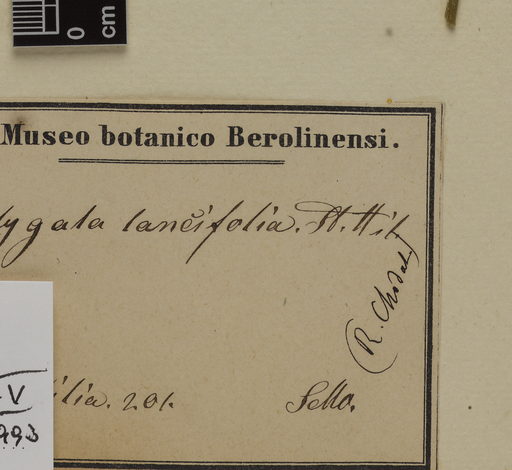 0 cm
Museo botanico Berolinensi.
lygala lancifolia. St. Hil
(R. Chodat)
V
ilia. 201. Sello.
993